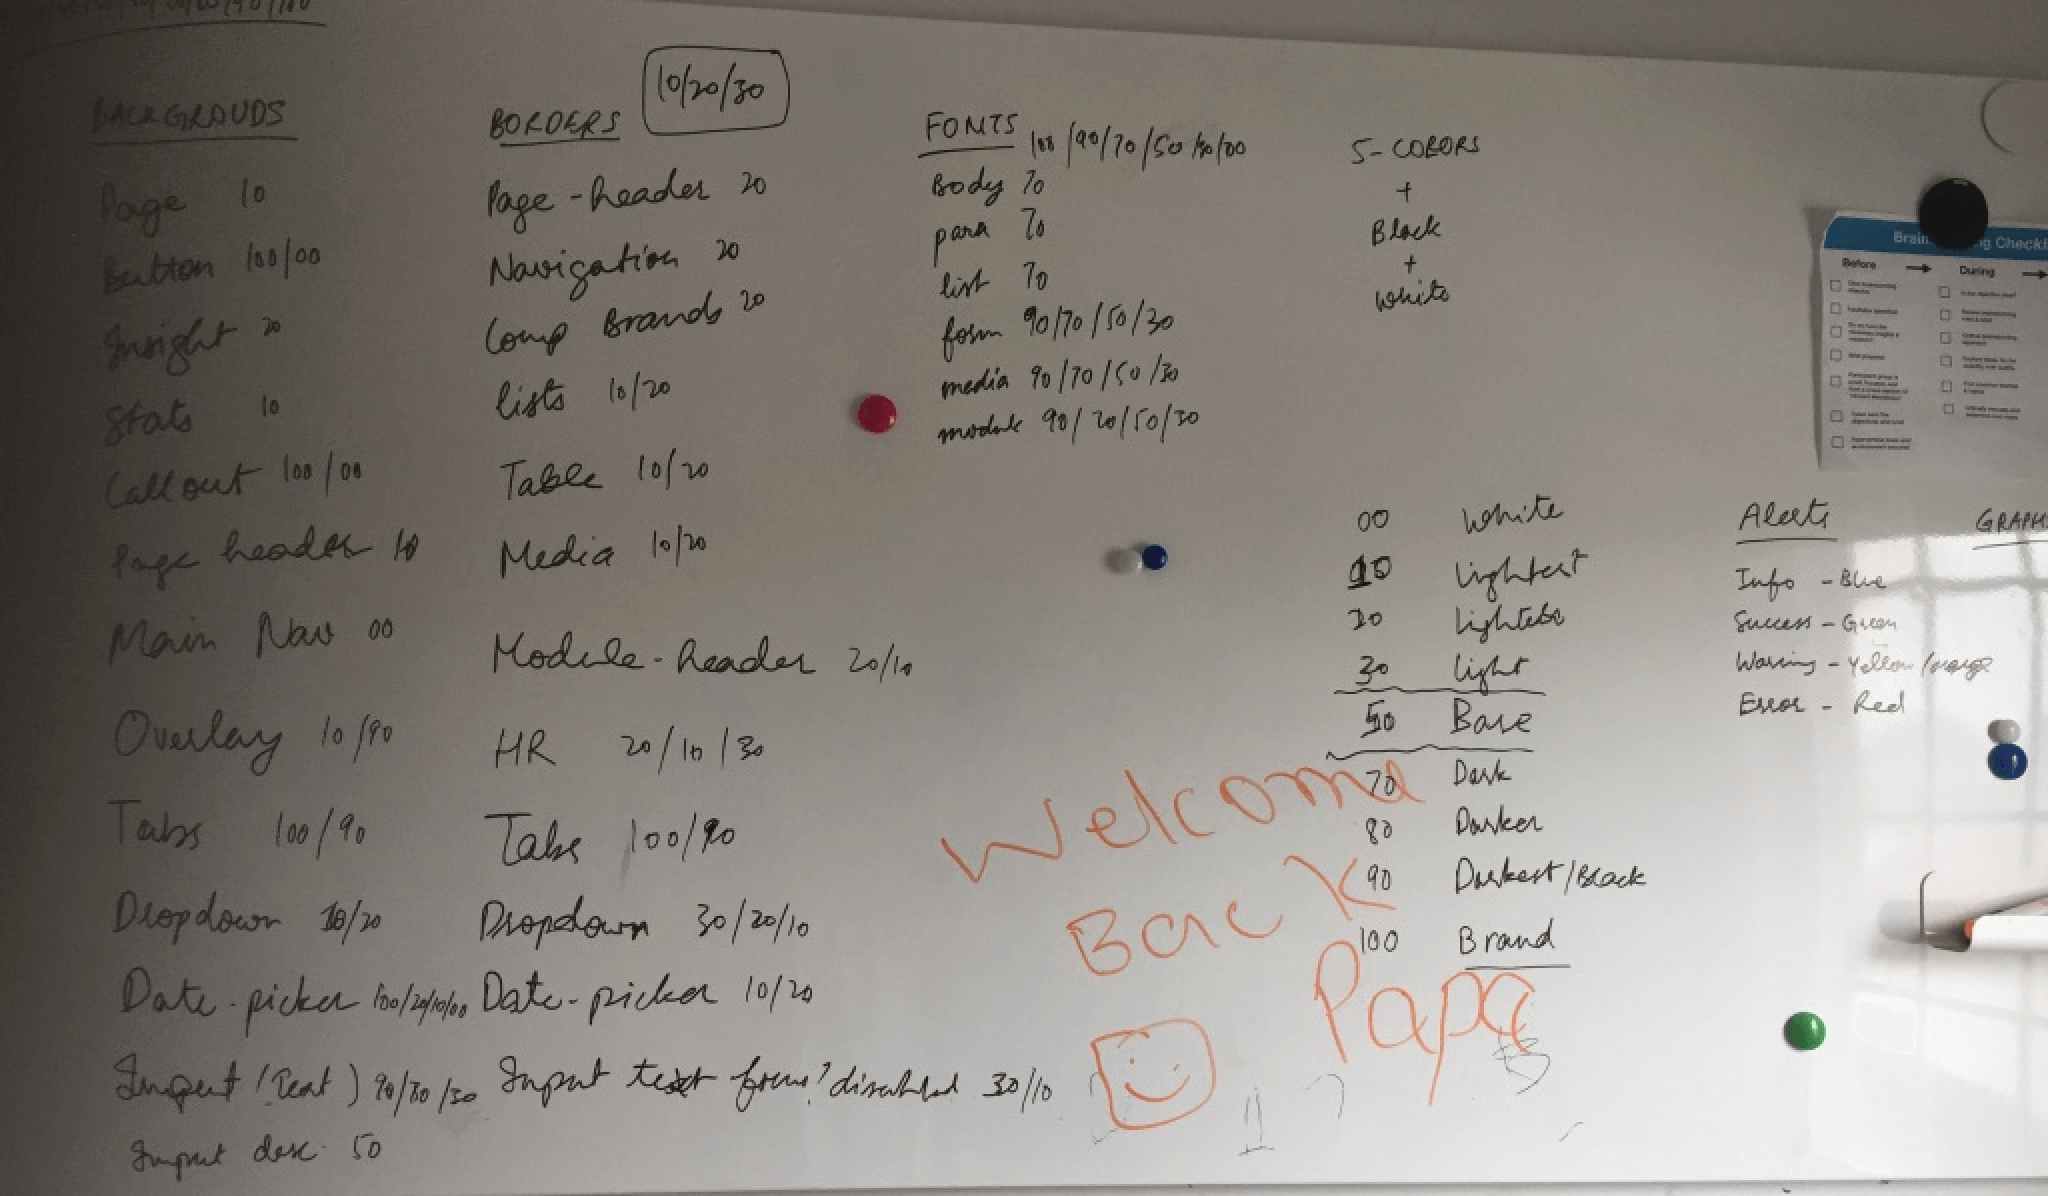 BACKGROUDS
Page 10
Button 100/00
Insight 20
Stats 10
Callout 100/00
Page header 10
Main Nav 00
Overlay 10/90
Tabs 100/90
Dropdown 10/20
Date-picker 100/20/10/00
Input (Text) 90/80/30
Input desc. 50
BORDERS
10/20/30
Page-header 20
Navigation 20
Comp Brands 20
lists 10/20
Table 10/20
Media 10/20
Module-header 20/10
HR 20/10/30
Tabs 100/90
Dropdown 30/20/10
Date-picker 10/20
Input text focus/disabled 30/10
FONTS
100/90/70/50/30/00
Body 70
para 70
list 70
form 90/70/50/30
media 90/70/50/30
module 90/70/50/30
5-COLORS
+
Black
+
White
00 White
10 Lightest
20 Lighter
30 Light
50 Base
70 Dark
80 Darker
90 Darkest/Black
100 Brand
Alerts
Info - Blue
Success - Green
Warning - Yellow/orange
Error - Red
GRAPH
Welcome
Back
Papa
Checkli
Before
During